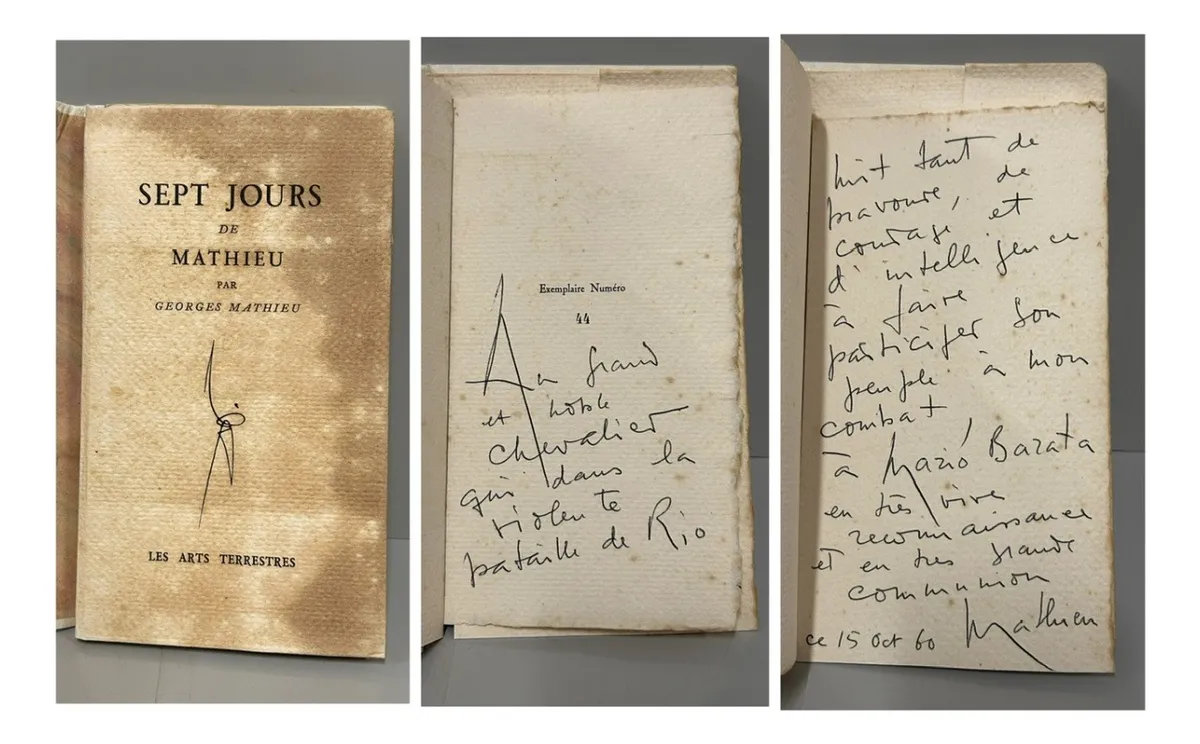 SEPT JOURS
DE
MATHIEU
PAR
GEORGES MATHIEU
LES ARTS TERRESTRES
Exemplaire Numéro
44
Au grand
et noble
chevalier
qui dans la
violente
bataille de Rio
mit tant de
bravoure, de
courage et
d'intelligence
à faire
participer son
peuple à mon
combat
à Mario Barata
en très vive
reconnaissance
et en très grande
communion
ce 15 Oct 60 Mathieu